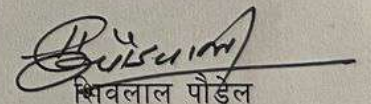 शिवलाल पौडेल